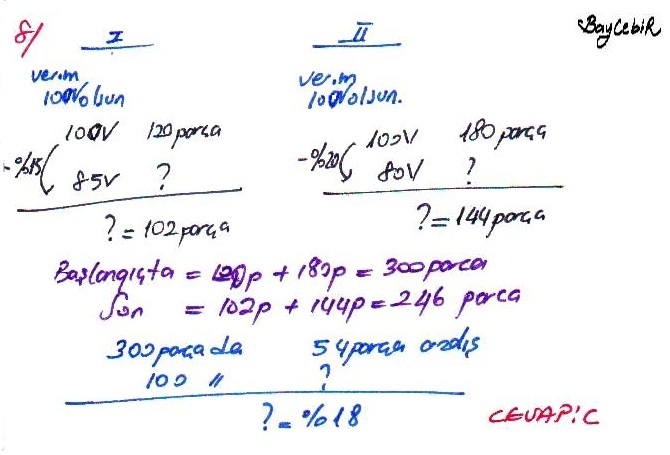 8/ I II BayCebiR
verim verim
100V olsun 100V olsun.
100V 120 parça 100V 180 parça
-%15 -%20
85V ? 80V ?
? = 102 parça ? = 144 parça
Başlangıçta = 120p + 180p = 300 parça
Son = 102p + 144p = 246 parca
300 parçada 54 parça azalış
100 〃 ?
? = %18 CEVAP: C